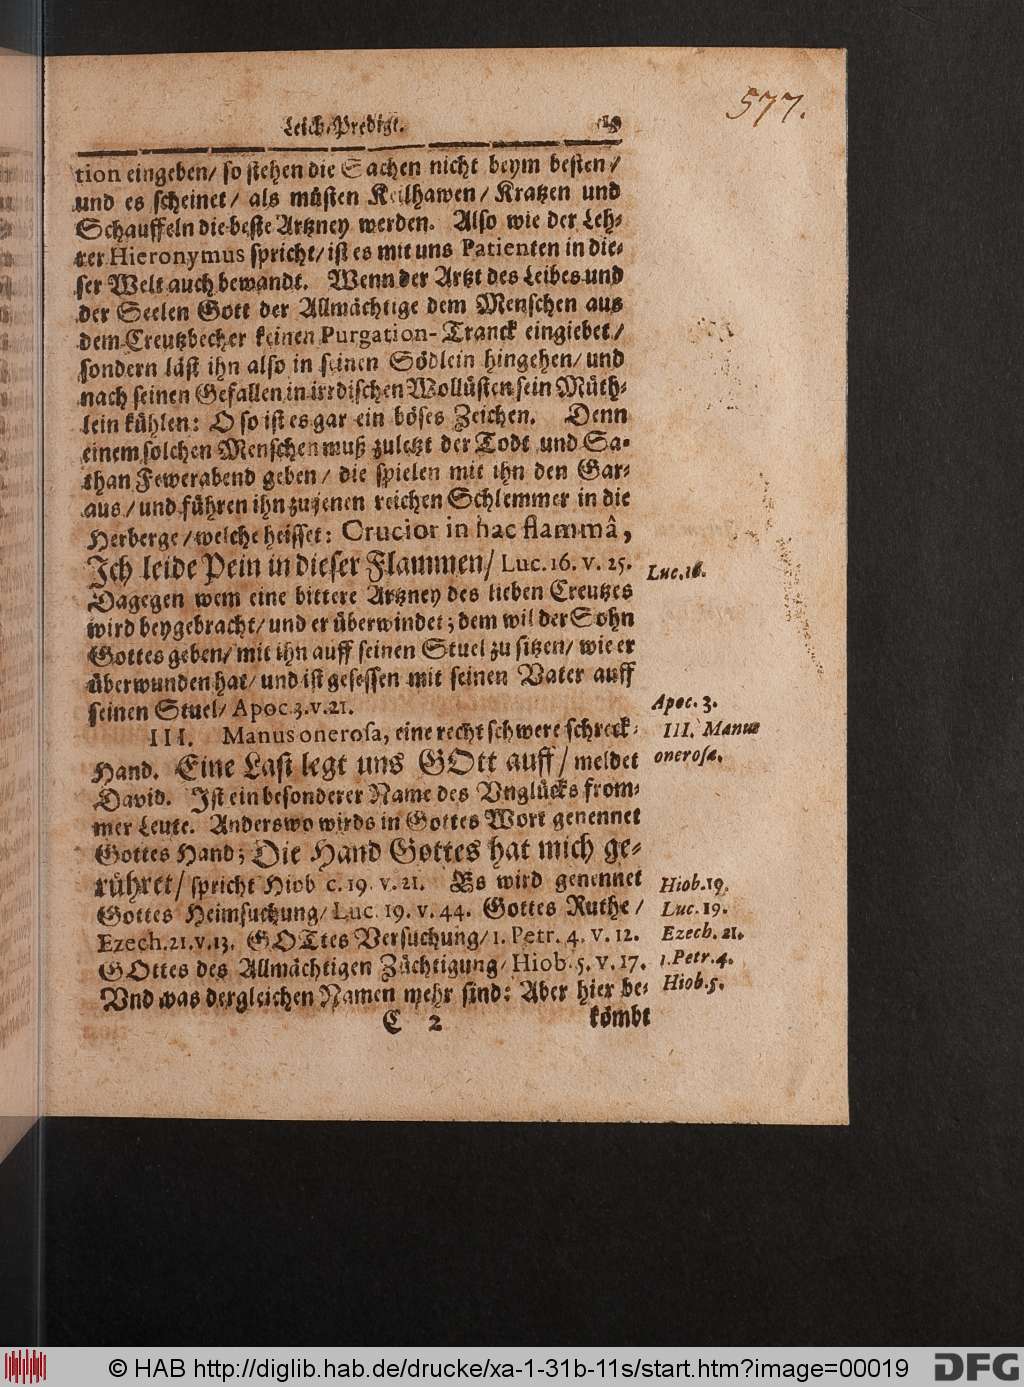 577.
Leich-Predigt. 19
tion eingeben/ so stehen die Sachen nicht beym besten/
und es scheinet/ als müsten Keilhawen/ Kratzen und
Schauffeln die beste Artzney werden. Also wie der Leh-
rer Hieronymus spricht/ ist es mit uns Patienten in die-
ser Welt auch bewandt. Wenn der Artzt des Leibes und
der Seelen Gott der Allmächtige dem Menschen aus
dem Creutzbecher keinen Purgation-Tranck eingiebet/
sondern läst ihn also in seinen Södlein hingehen/ und
nach seinen Gefallen in irrdischen Wollüsten sein Müth-
lein kühlen: O so ist es gar ein böses Zeichen. Denn
einem solchen Menschen muß zuletzt der Todt und Sa-
than Fewerabend geben/ die spielen mit ihn den Gar-
aus/ und führen ihn zu jenen reichen Schlemmer in die
Herberge/ welche heisset: Crucior in hac flammâ,
Ich leide Pein in dieser Flammen/ Luc. 16. v. 25.
Luc. 16.
Dagegen wem eine bittere Artzney des lieben Creutzes
wird beygebracht/ und er überwindet; dem wil der Sohn
Gottes geben/ mit ihn auff seinen Stuel zu sitzen/ wie er
überwunden hat/ und ist gesessen mit seinen Vater auff
seinen Stuel/ Apoc. 3. v. 21.
Apoc. 3.
III. Manus onerosa, eine recht schwere schreck-
III. Manus
Hand. Eine Last legt uns GOtt auff/ meldet
onerosa.
David. Ist ein besonderer Name des Vnglücks from-
mer Leute. Anderswo wirds in Gottes Wort genennet
Gottes Hand; Die Hand Gottes hat mich ge-
rühret/ spricht Hiob c. 19. v. 21. Es wird genennet
Hiob. 19.
Gottes Heimsuchung/ Luc. 19. v. 44. Gottes Ruthe/
Luc. 19.
Ezech. 21. v. 13. GOTtes Versuchung/ 1. Petr. 4. v. 12.
Ezech. 21.
GOttes des Allmächtigen Züchtigung/ Hiob. 5. v. 17.
1. Petr. 4.
Vnd was dergleichen Namen mehr sind: Aber hier be-
Hiob. 5.
C 2 kömbt
© HAB http://diglib.hab.de/drucke/xa-1-31b-11s/start.htm?image=00019
DFG